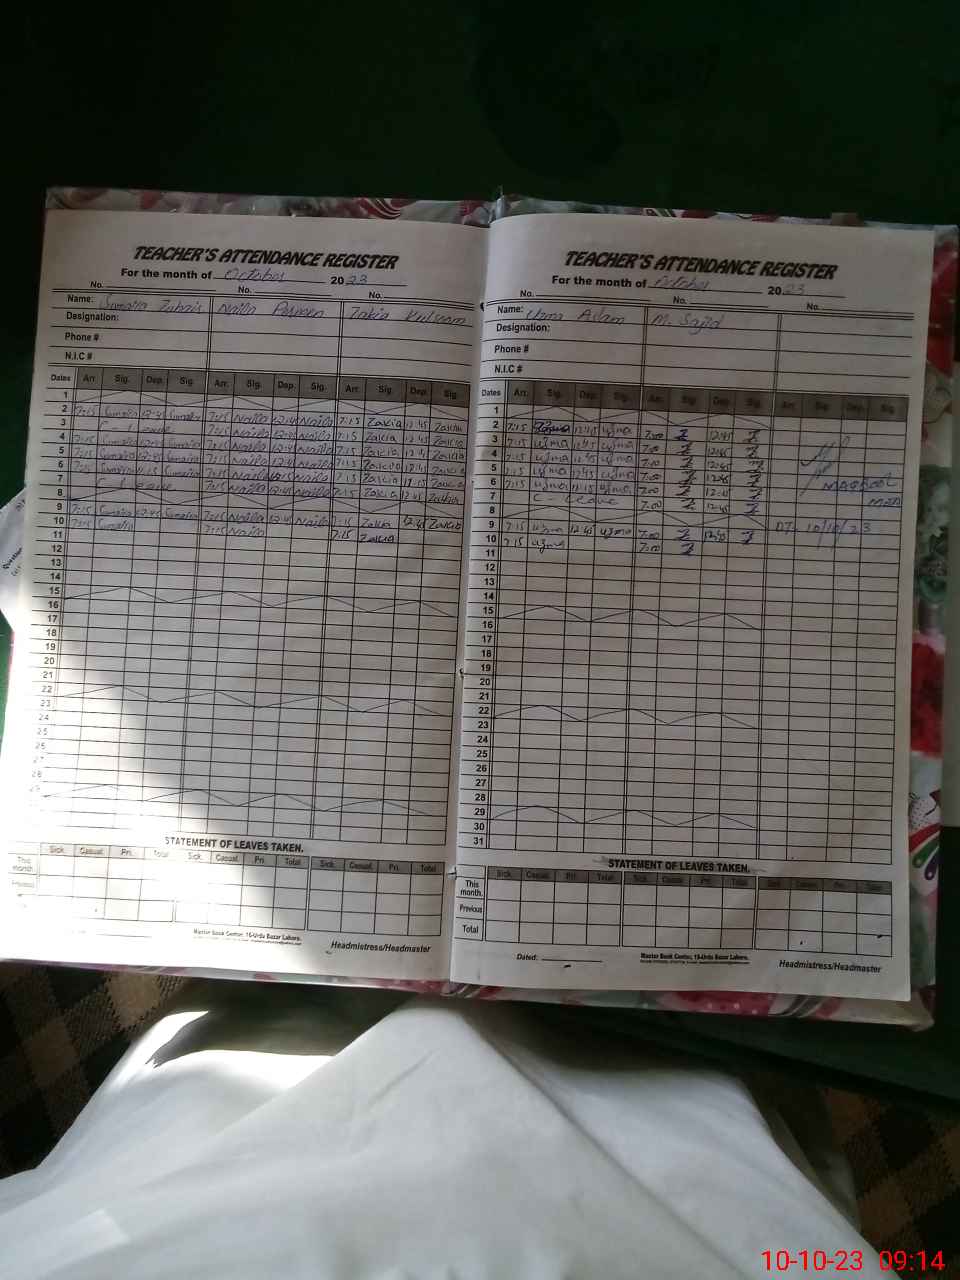 TEACHER'S ATTENDANCE REGISTER
For the month of October 2023
No. No. No.
Name: Sumaira Zahair Naila Parveen Zakia Kulsoom
Designation:
Phone #
N.I.C #
Dates Arr. Sig. Dep. Sig. Arr. Sig. Dep. Sig. Arr. Sig. Dep. Sig.
1
2 7:15 Sumaira 12:45 Sumaira 7:15 Naila 12:45 Naila 7:15 Zakia 12:45 Zakia
3 C - Leave 7:15 Naila 12:45 Naila 7:15 Zakia 12:45 Zakia
4 7:15 Sumaira 12:45 Sumaira 7:15 Naila 12:45 Naila 7:15 Zakia 12:45 Zakia
5 7:15 Sumaira 12:45 Sumaira 7:15 Naila 12:45 Naila 7:15 Zakia 12:45 Zakia
6 7:15 Sumaira 12:15 Sumaira 7:15 Naila 12:15 Naila 7:15 Zakia 12:15 Zakia
7 C - Leave 7:15 Naila 12:45 Naila 7:15 Zakia 12:45 Zakia
8
9 7:15 Sumaira 12:45 Sumaira 7:15 Naila 12:45 Naila 7:15 Zakia 12:45 Zakia
10 7:15 Sumaira 7:15 Naila 7:15 Zakia
11
12
13
14
15
16
17
18
19
20
21
22
23
24
25
STATEMENT OF LEAVES TAKEN.
Sick. Casual. Pri. Total Sick. Casual. Pri. Total Sick. Casual. Pri. Total
This month.
Previous
Master Book Center, 16-Urdu Bazar Lahore.
Headmistress/Headmaster
TEACHER'S ATTENDANCE REGISTER
For the month of October 2023
No. No. No.
Name: Uzma Aslam M. Sajid
Designation:
Phone #
N.I.C #
Dates Arr. Sig. Dep. Sig. Arr. Sig. Dep. Sig. Arr. Sig. Dep. Sig.
1
2 7:15 Uzma 12:45 uzma 7:00 12:45
3 7:15 uzma 12:45 uzma 7:00 12:45
4 7:15 uzma 12:45 uzma 7:00 12:45
5 7:15 uzma 12:45 uzma 7:00 12:45
6 7:15 uzma 12:15 uzma 7:00 12:15
7 C - Leave 7:00 12:45
8
9 7:15 uzma 12:45 uzma 7:00 12:45 DT. 10/10/23
10 7:15 uzma 7:00
11
12
13
14
15
16
17
18
19
20
21
22
23
24
25
26
27
28
29
30
31
STATEMENT OF LEAVES TAKEN.
Sick. Casual. Pri. Total Sick. Casual. Pri. Total Sick. Casual. Pri. Total
This month.
Previous
Total
Dated:
Master Book Center, 16-Urdu Bazar Lahore.
Headmistress/Headmaster
10-10-23 09:14